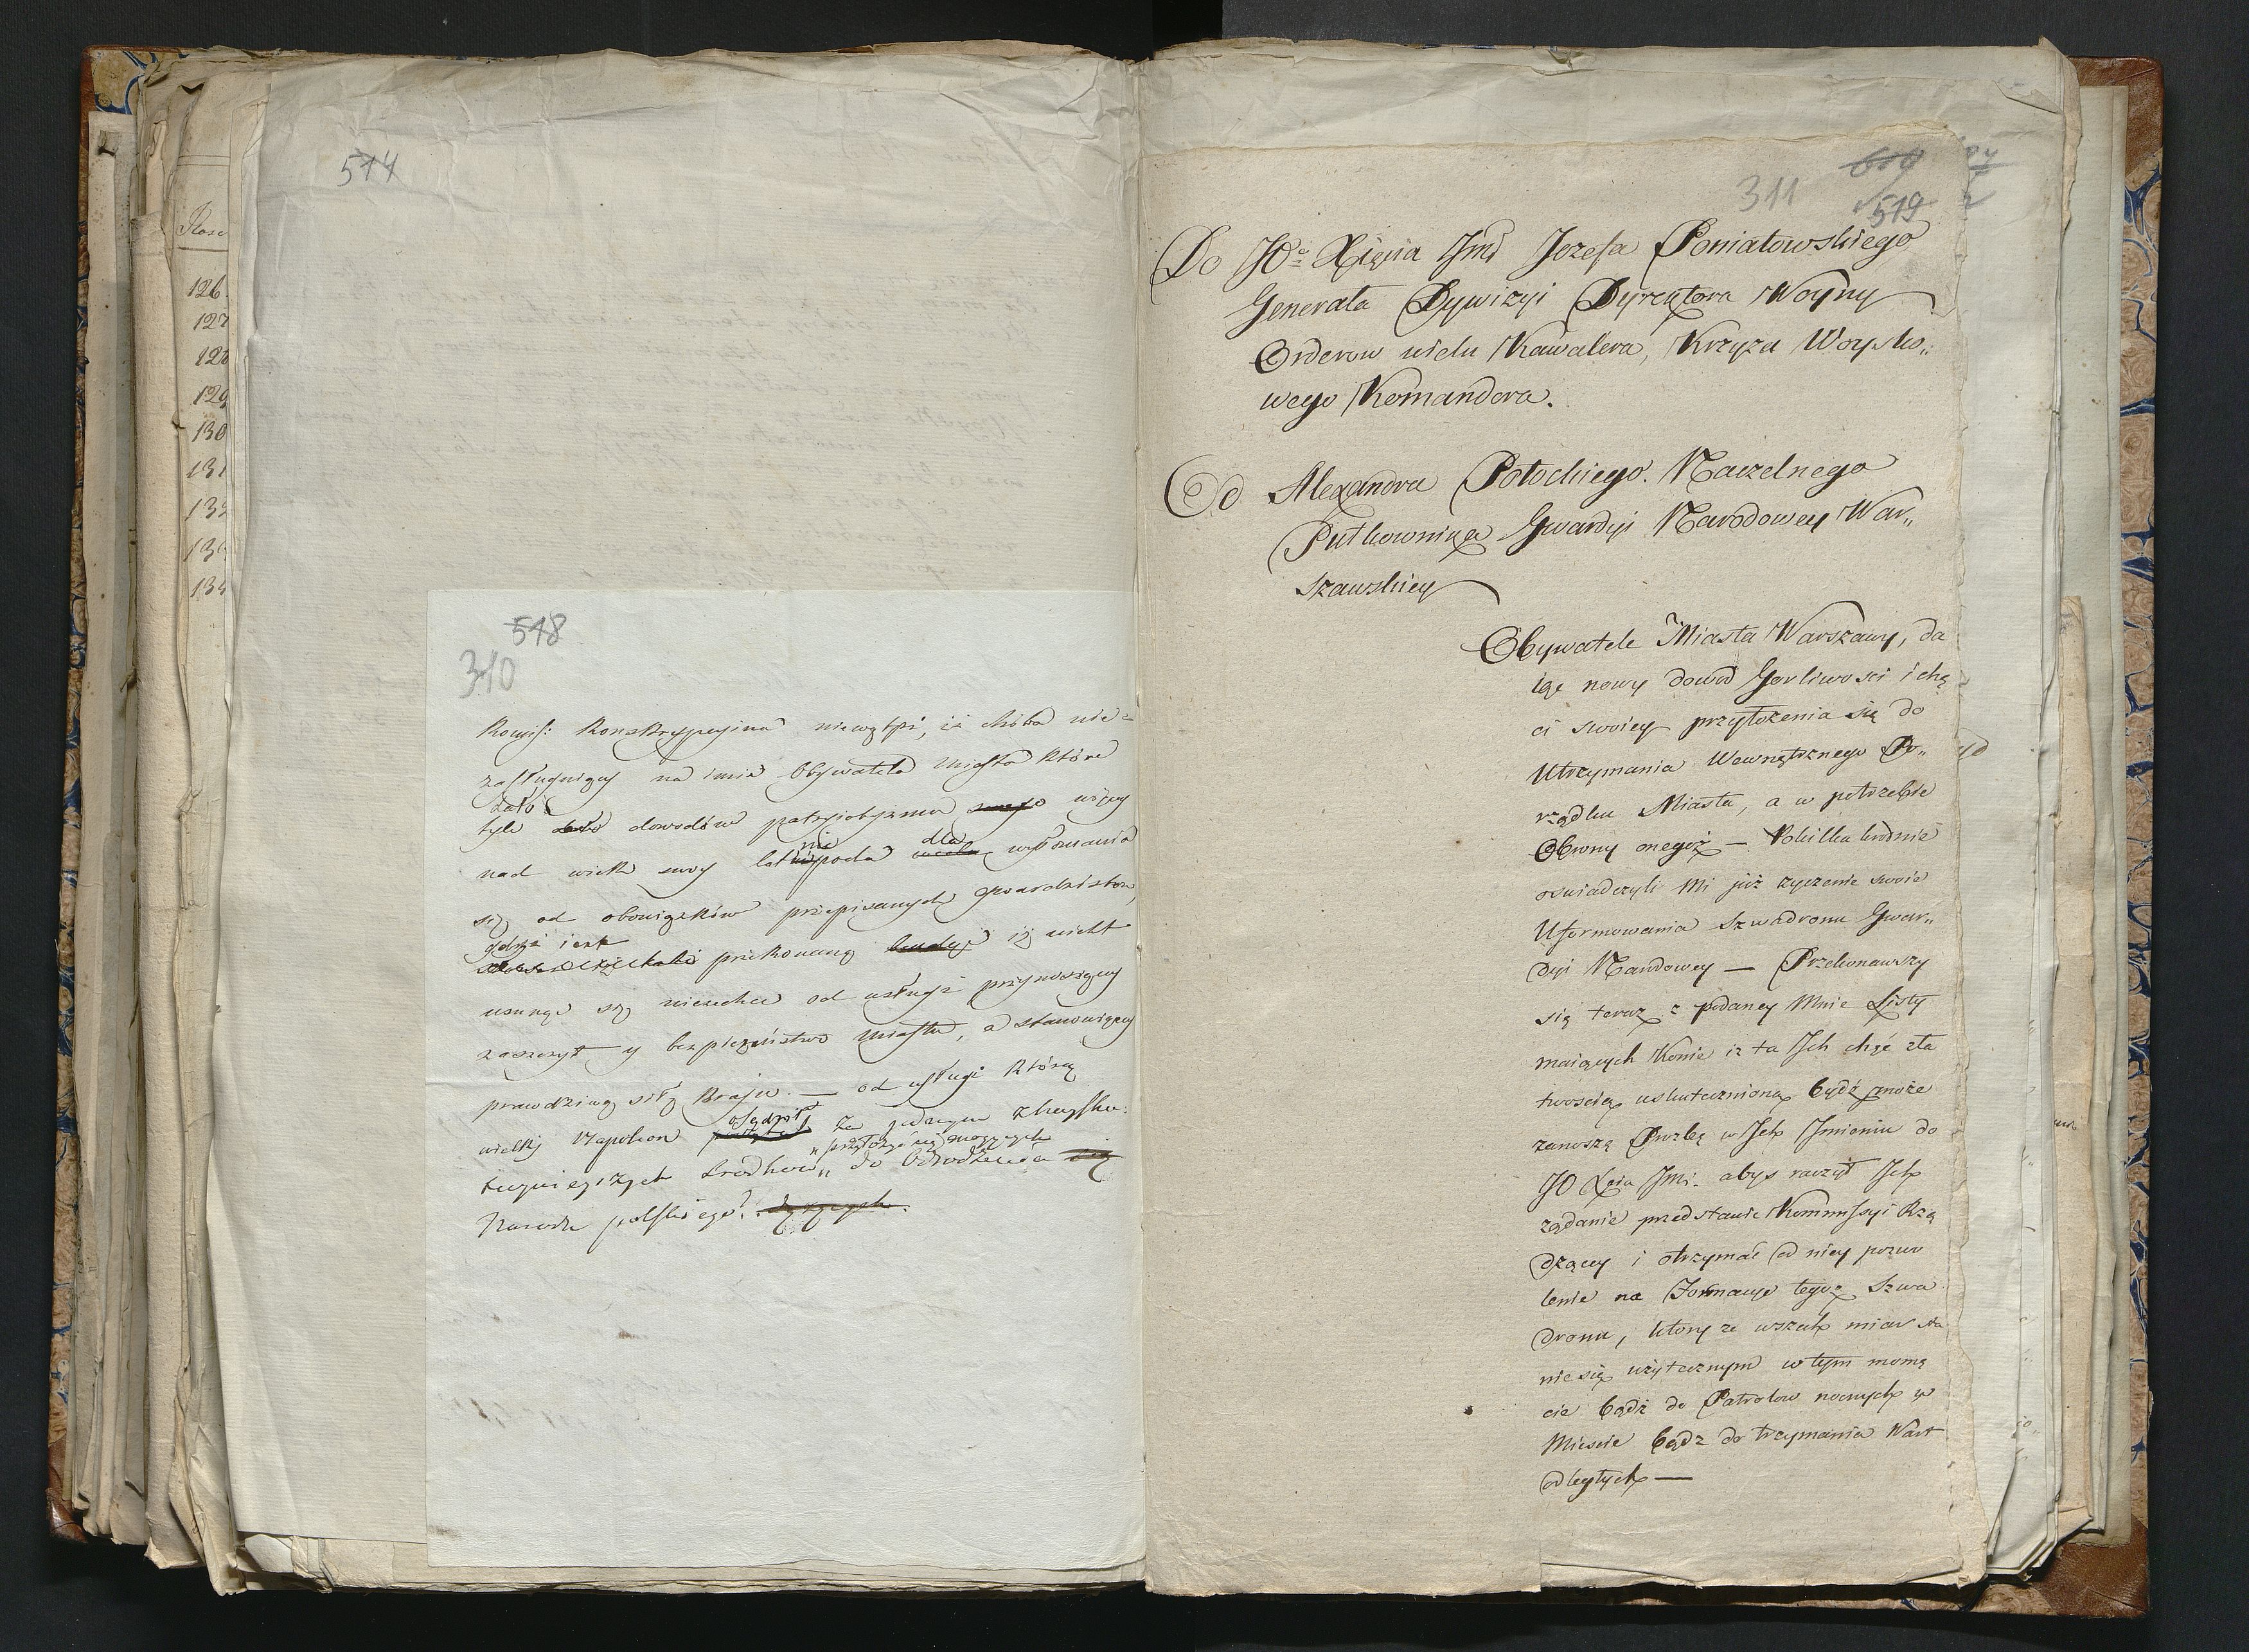 Rosc
126.
127
128
129
130
131
134
514
518
310
Komiss: Konskrypcyjna niewątpi, iż chiba nie=
zasługuiący na imie Obywatela miasta które
dało
tyle dowodów patryiotyzmu swego więcey
nie dla
nad wiek swoy lat poda wyłomania
się od obowiązków przepisanych gwardzistom,
gdyż iest
przekonaną iż nicht
usunąć się niezechce od usługi przynoszącey
zaszczyt y bezpieczeństwo miastu, a stanowiącey
prawdziwą siłę Kraju. — od usługi którą
osądził
wielki Napoleon za jednym z najsku:
przyłożyć się mogących
tecznieyszych Srodkow „ do Odrodzenia się
Narodu polskiego.
609
311
519
Do JOo Xięcia Jmć Jozefa Poniatowskiego
Generała Dywizyi Dyrektora Woyny
Orderow wielu Kawalera, Krzyża Woysko„
wego Komandora.
Od Alexandra Potockiego. Naczelnego
Pułkownika Gwardyi Narodowey War„
szawskiey
Obywatele Miasta Warszawy, da
iąc nowy dowod Gorliwosci i chę
ci swoiey przyłożenia się do
Utrzymania Wewnętrznego Po„
rządku Miasta, a w potrzebie
Obrony onegoż — Pokilkakrotnie
oswiadczyli Mi już życzenie swoie
Uformowania Szwadronu Gwar„
dyi Narodowey — Przekonawszy
się teraz z podaney Mnie Listy
maiących Konie iż ta Ich chęć z ła
twoscią uskutecznioną bydź może
zanoszą Prozbę w Ich Imieniu do
JO Xcia Jmć. abyś raczył Ich
żądanie przedstawić Kommissyi Rzą
dzącey i otrzymać od niey pozwo
lenie na Formacye tegoż Szwa
dronu, ktory ze wszech miar sta
nie się użytecznym w tym momę
cie bądź do Patrolow nocnych w
Miescie bądz do trzymania Wart
odległych —